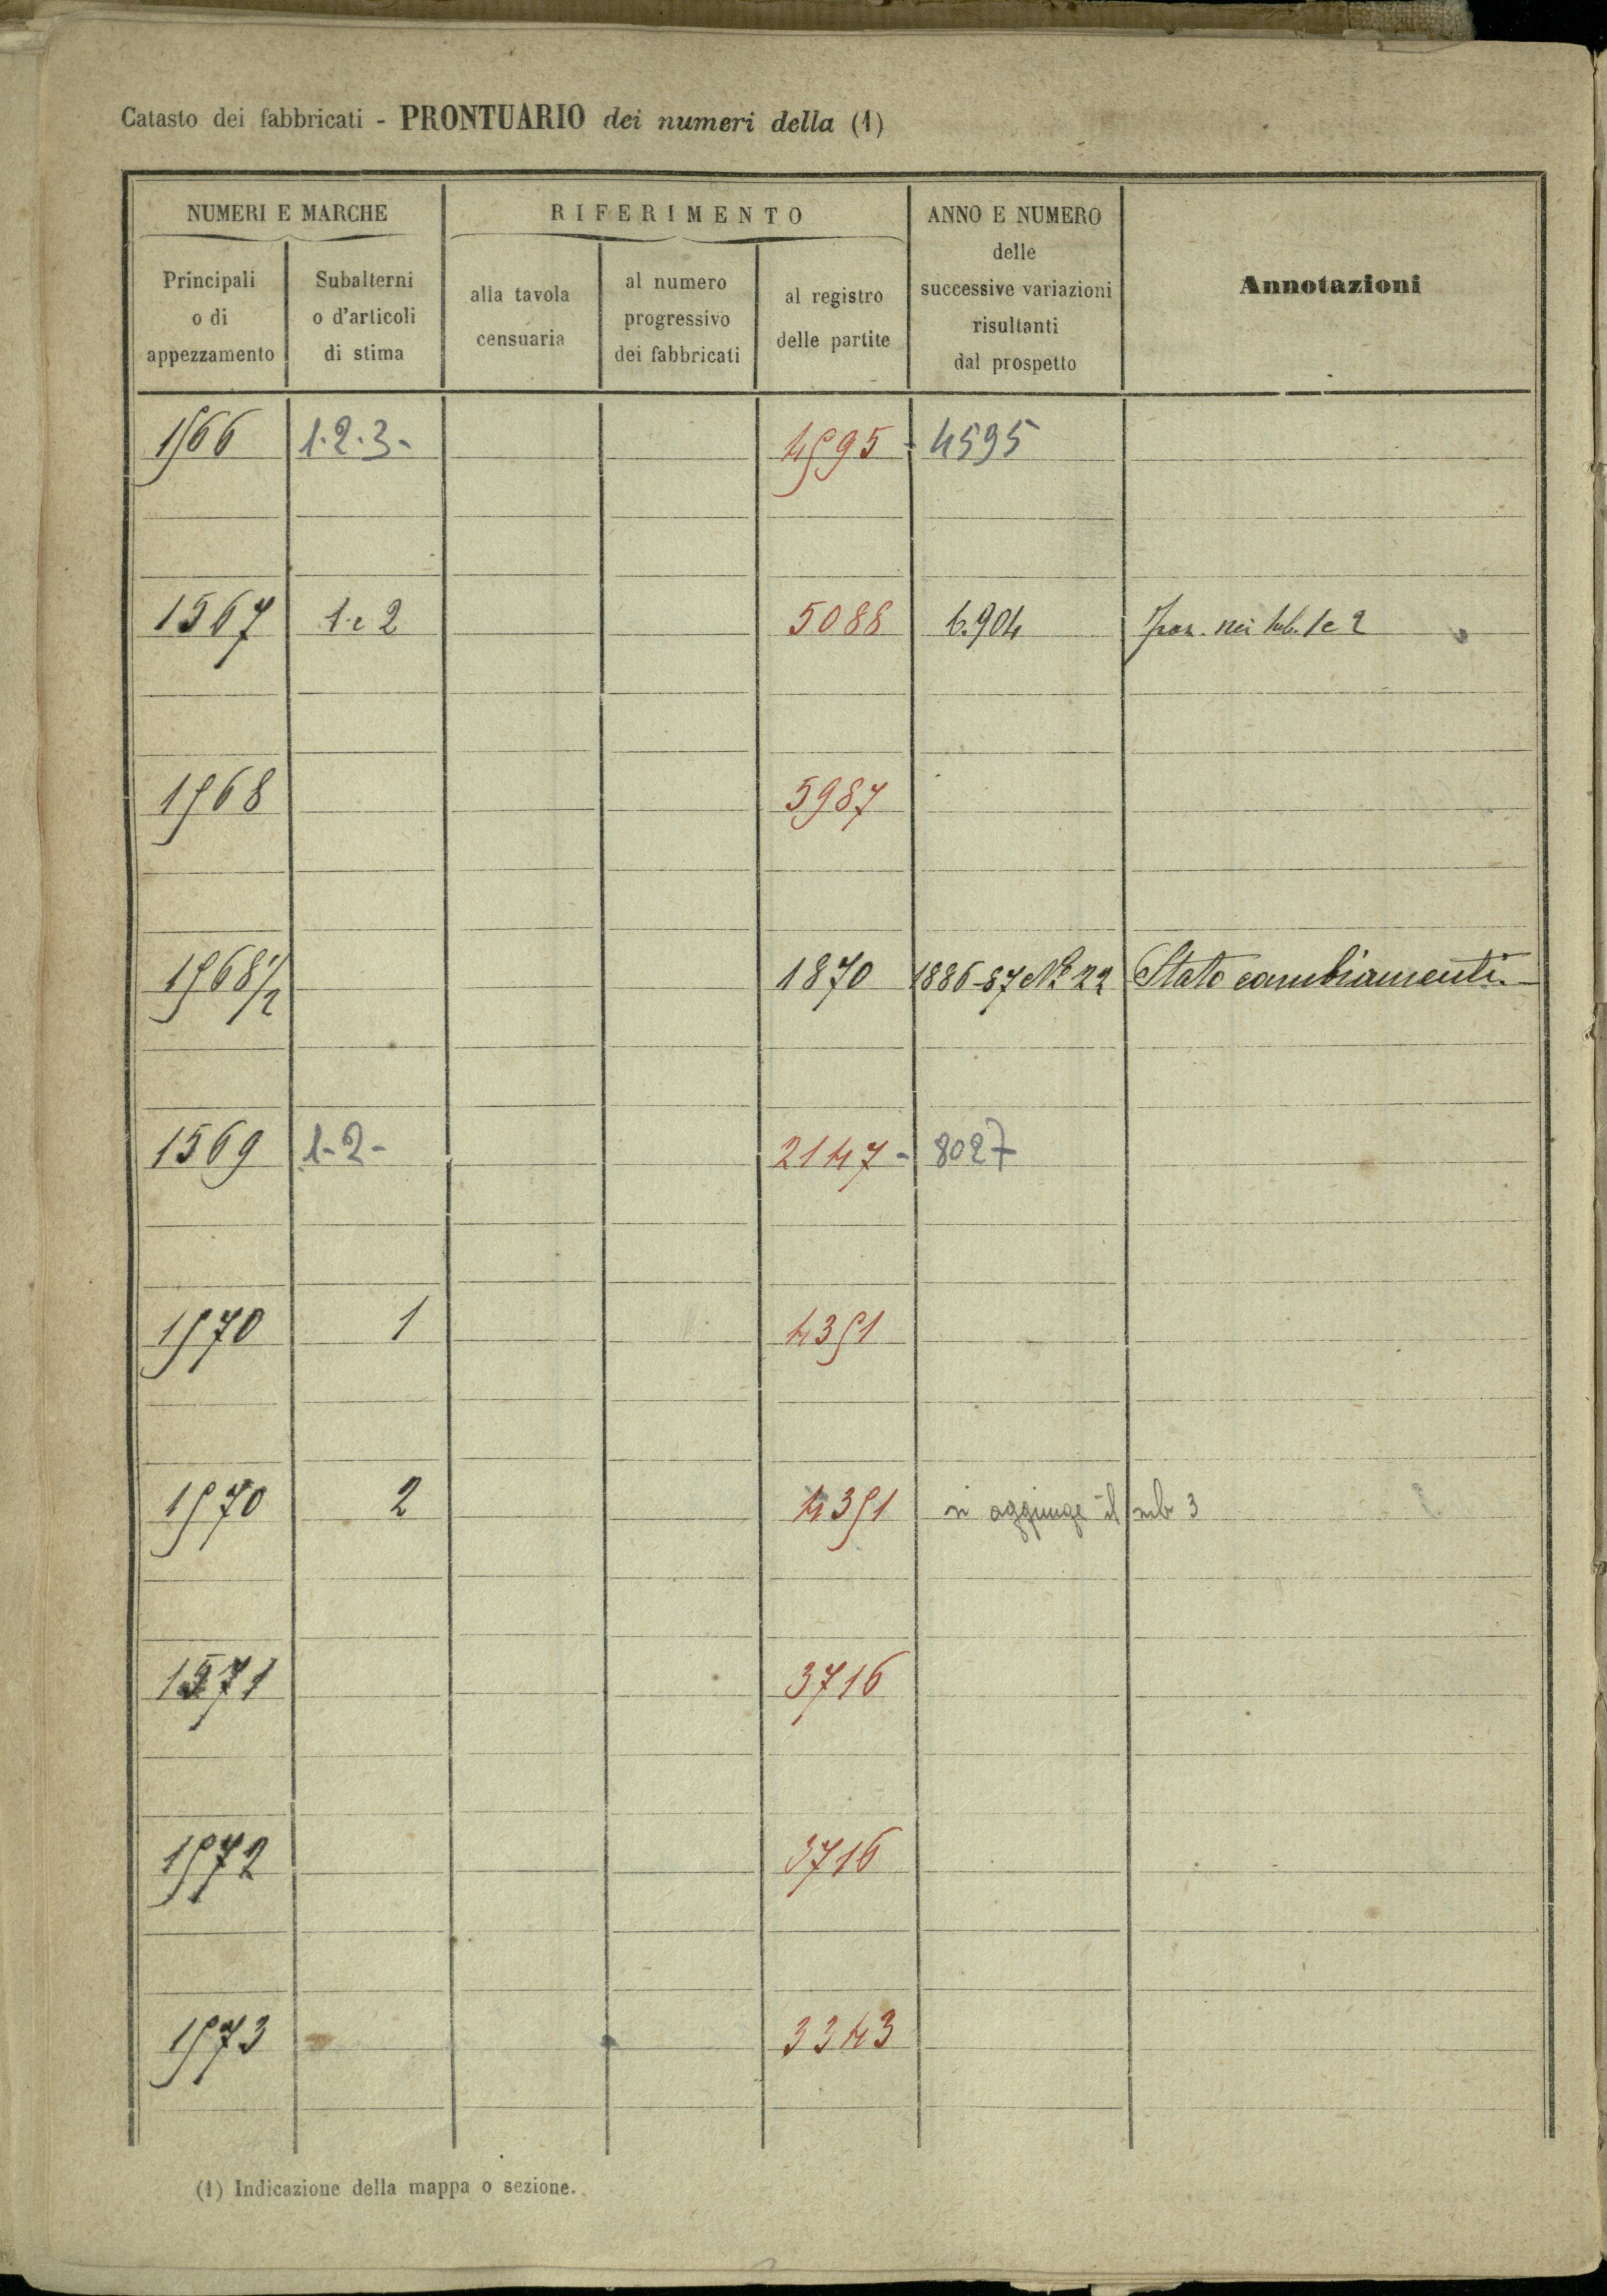 Catasto dei fabbricati - PRONTUARIO dei numeri della (1)
NUMERI E MARCHE
RIFERIMENTO
ANNO E NUMERO
delle
successive variazioni
risultanti
dal prospetto
Annotazioni
Principali
o di
appezzamento
Subalterni
o d'articoli
di stima
alla tavola
censuaria
al numero
progressivo
dei fabbricati
al registro
delle partite
1566 1.2.3- 4595 - 4595
1567 1 e 2 5088 6904 nei sub. 1 e 2
1568 5987
1568 1/2 1870 1886-87 N° 22 Stato cambiamenti.
1569 1-2- 2147 - 8027
1570 1 4351
1570 2 4351 si aggiunge il sub 3
1571 3716
1572 3716
1573 3343
(1) Indicazione della mappa o sezione.